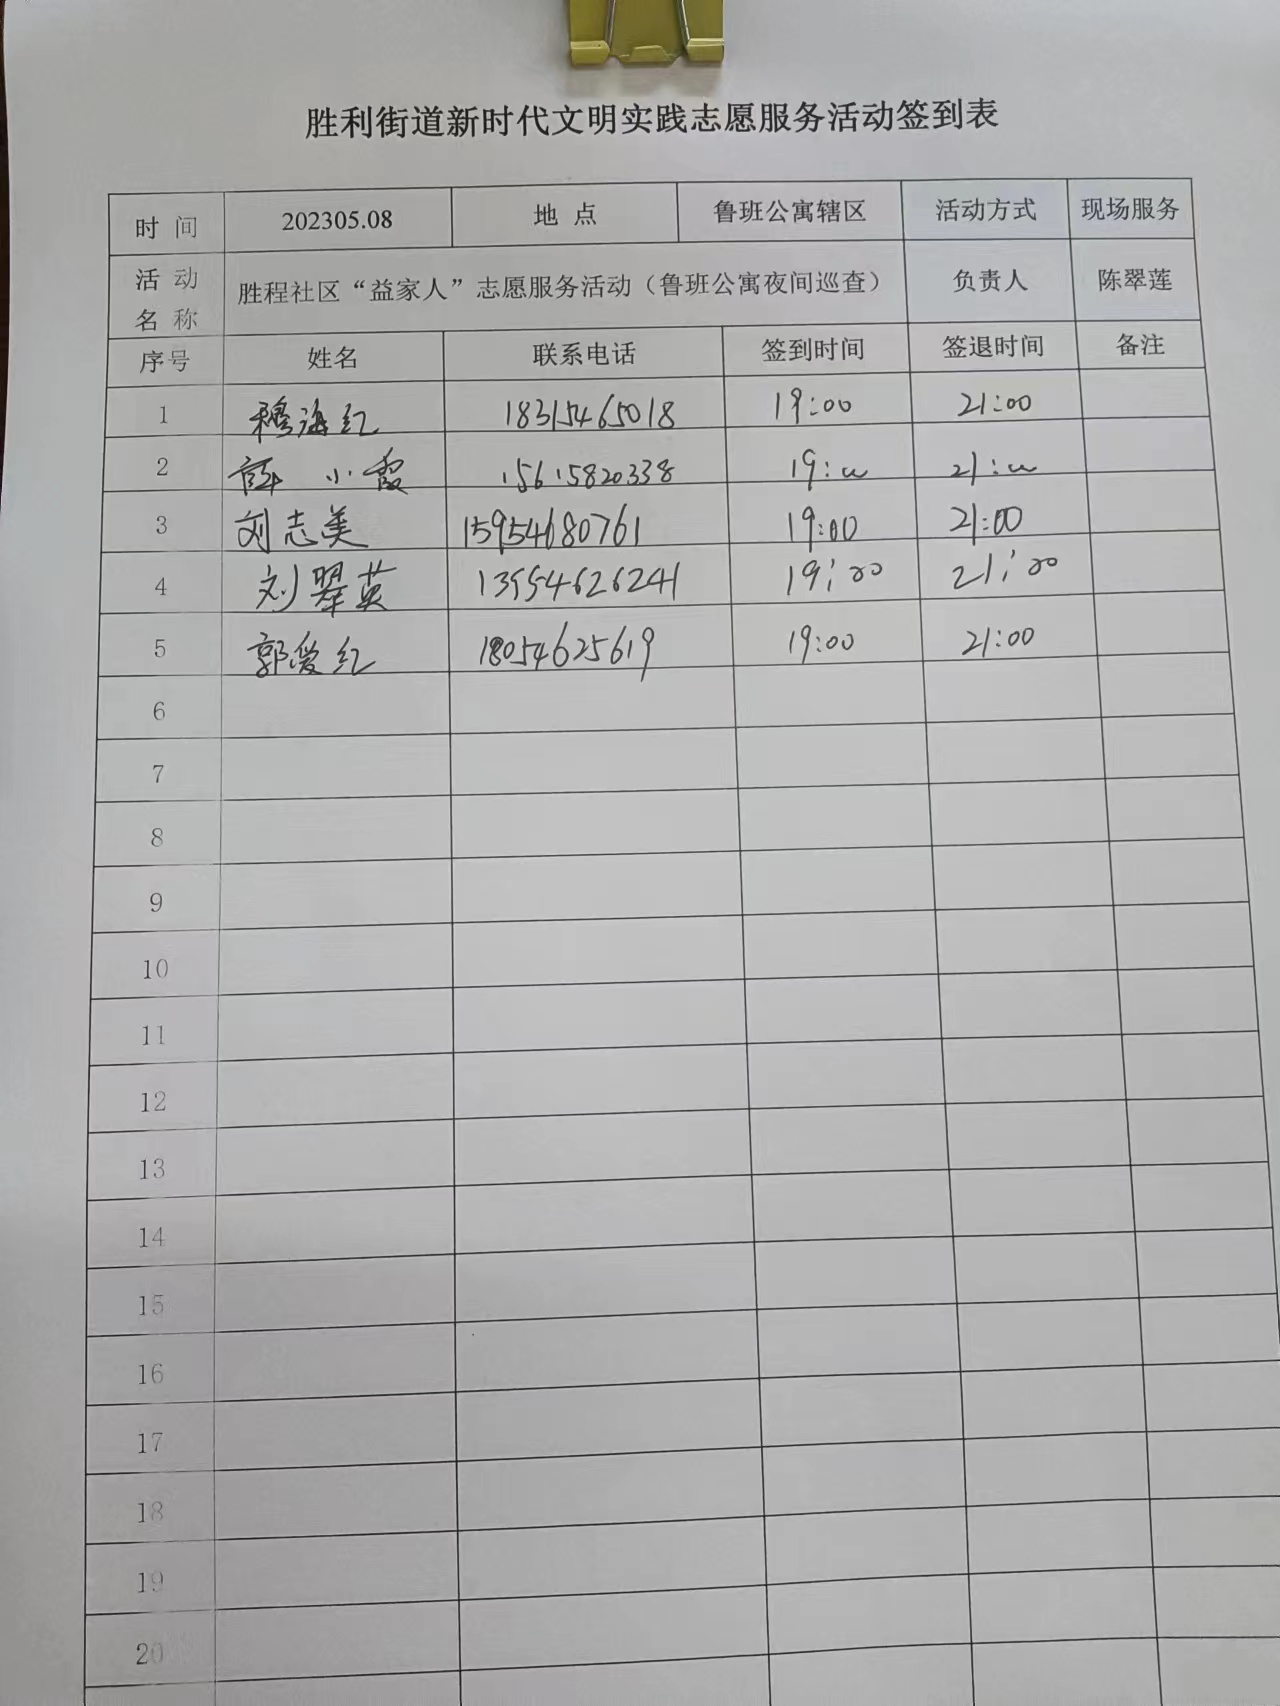 胜利街道新时代文明实践志愿服务活动签到表
时 间 202305.08 地 点 鲁班公寓辖区 活动方式 现场服务
活 动 名 称 胜程社区“益家人”志愿服务活动（鲁班公寓夜间巡查） 负责人 陈翠莲
序号 姓名 联系电话 签到时间 签退时间 备注
1 穆海红 18315465018 19:00 21:00
2 薛小霞 15615820338 19:00 21:00
3 刘志美 15954680761 19:00 21:00
4 刘翠英 13954626241 19:00 21:00
5 郭爱红 18054625619 19:00 21:00
6
7
8
9
10
11
12
13
14
15
16
17
18
19
20